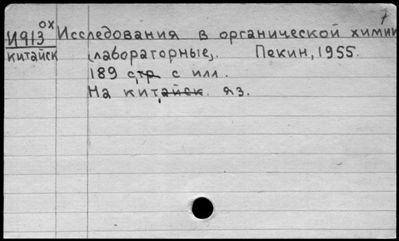 7
ОХ
И913 Исследования в органической химии
китайск (лабораторные). Пекин, 1955.
189 стр с илл.
На китайск. яз.